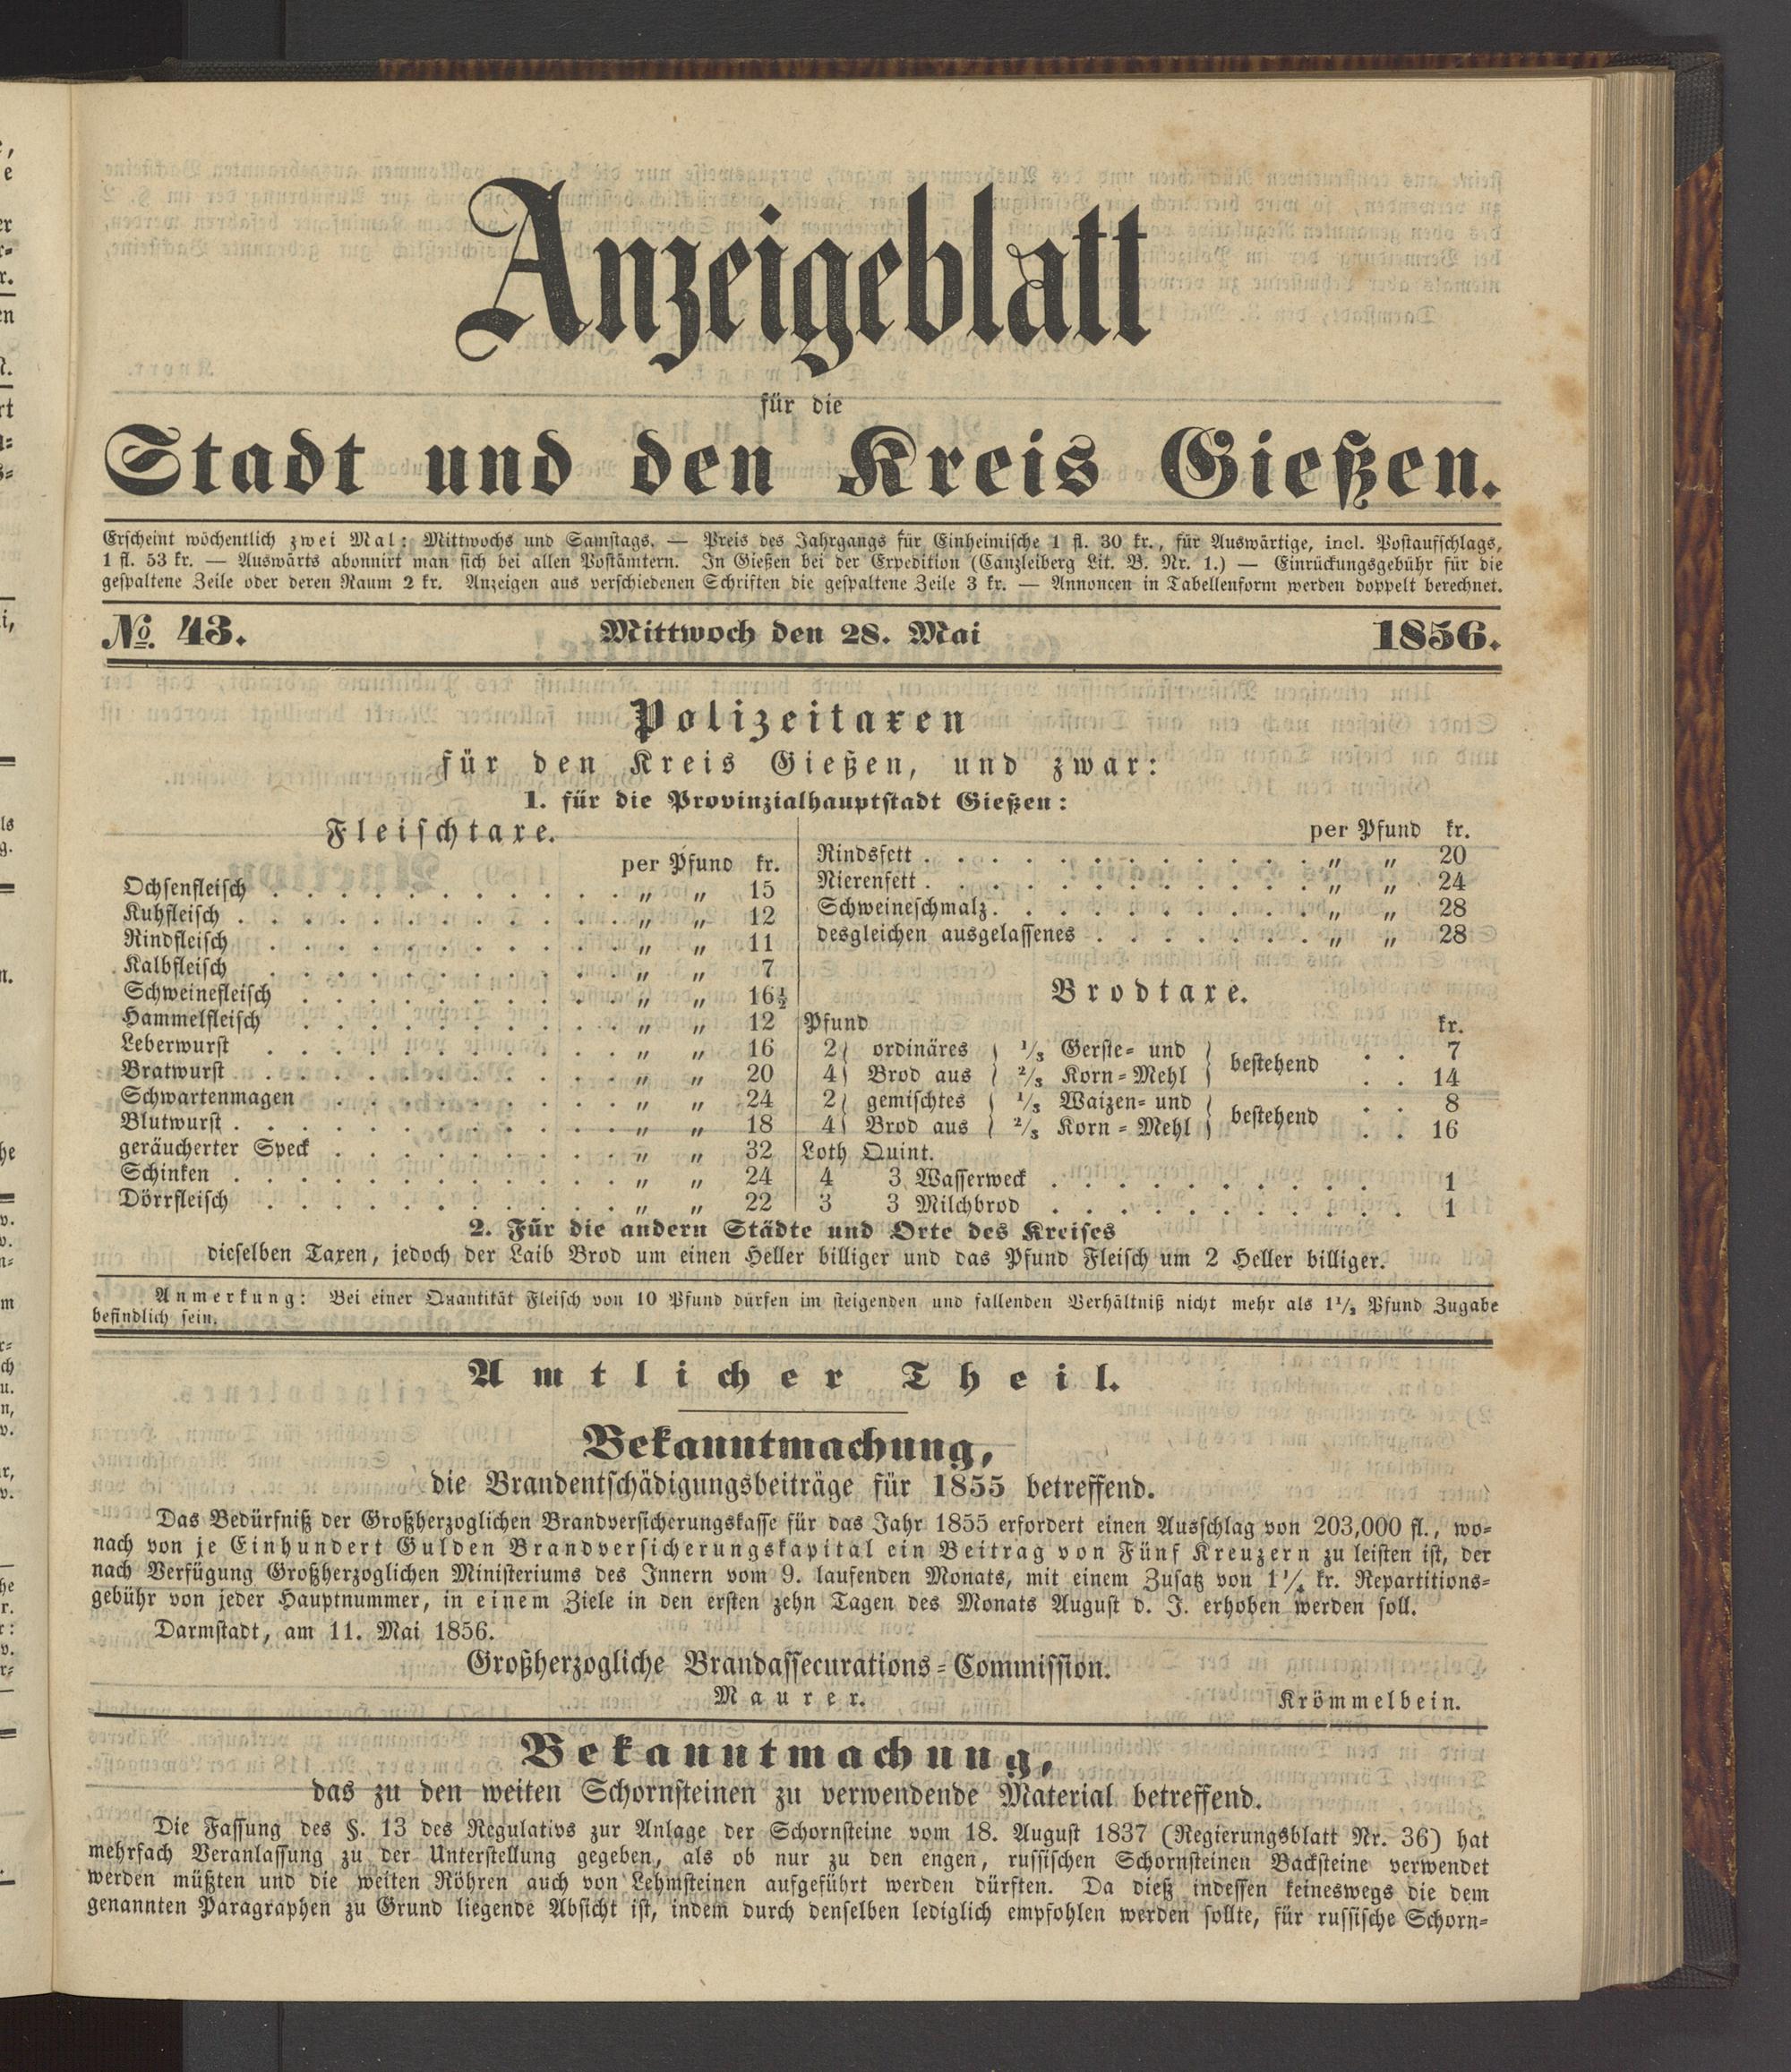 Anzeigeblatt
für die
Stadt und den Kreis Gießen.
Erscheint wöchentlich zwei Mal: Mittwochs und Samstags. — Preis des Jahrgangs für Einheimische 1 fl. 30 kr., für Auswärtige, incl. Postaufschlags,
1 fl. 53 kr. — Auswärts abonnirt man sich bei allen Postämtern. In Gießen bei der Expedition (Canzleiberg Lit. B. Nr. 1.) — Einrückungsgebühr für die
gespaltene Zeile oder deren Raum 2 kr. Anzeigen aus verschiedenen Schriften die gespaltene Zeile 3 kr. — Annoncen in Tabellenform werden doppelt berechnet.
No. 43. Mittwoch den 28. Mai 1856.
Polizeitaxen
für den Kreis Gießen, und zwar:
1. für die Provinzialhauptstadt Gießen:
Fleischtaxe.
per Pfund kr.
Ochsenfleisch . . . . . . . . . . . „ „ 15
Kuhfleisch . . . . . . . . . . . . „ „ 12
Rindfleisch . . . . . . . . . . . „ „ 11
Kalbfleisch . . . . . . . . . . . „ „ 7
Schweinefleisch . . . . . . . . . . „ „ 16½
Hammelfleisch . . . . . . . . . . „ „ 12
Leberwurst . . . . . . . . . . . „ „ 16
Bratwurst . . . . . . . . . . . „ „ 20
Schwartenmagen . . . . . . . . . „ „ 24
Blutwurst . . . . . . . . . . . . „ „ 18
geräucherter Speck . . . . . . . . . „ „ 32
Schinken . . . . . . . . . . . . „ „ 24
Dörrfleisch . . . . . . . . . . . „ „ 22
per Pfund kr.
Rindsfett . . . . . . . . . . . . „ „ 20
Nierenfett . . . . . . . . . . . . „ „ 24
Schweineschmalz . . . . . . . . . . „ „ 28
desgleichen ausgelassenes . . . . . . . „ „ 28
Brodtaxe.
Pfund kr.
2) ordinäres ( 1/3 Gerste- und ) bestehend . . 7
4) Brod aus ( 2/3 Korn-Mehl ) . . 14
2) gemischtes ( 1/3 Waizen- und ) bestehend . . 8
4) Brod aus ( 2/3 Korn-Mehl ) . . 16
Loth Quint.
4 3 Wasserweck . . . . . . . . . . 1
3 3 Milchbrod . . . . . . . . . . . 1
2. Für die andern Städte und Orte des Kreises
dieselben Taxen, jedoch der Laib Brod um einen Heller billiger und das Pfund Fleisch um 2 Heller billiger.
Anmerkung: Bei einer Quantität Fleisch von 10 Pfund dürfen im steigenden und fallenden Verhältniß nicht mehr als 1½ Pfund Zugabe
befindlich sein.
Amtlicher Theil.
Bekanntmachung,
die Brandentschädigungsbeiträge für 1855 betreffend.
Das Bedürfniß der Großherzoglichen Brandversicherungskasse für das Jahr 1855 erfordert einen Ausschlag von 203,000 fl., wo-
nach von je Einhundert Gulden Brandversicherungskapital ein Beitrag von Fünf Kreuzern zu leisten ist, der
nach Verfügung Großherzoglichen Ministeriums des Innern vom 9. laufenden Monats, mit einem Zusatz von 1¼ kr. Repartitions-
gebühr von jeder Hauptnummer, in einem Ziele in den ersten zehn Tagen des Monats August d. J. erhoben werden soll.
Darmstadt, am 11. Mai 1856.
Großherzogliche Brandassecurations-Commission.
Maurer. Krömmelbein.
Bekanntmachung,
das zu den weiten Schornsteinen zu verwendende Material betreffend.
Die Fassung des §. 13 des Regulativs zur Anlage der Schornsteine vom 18. August 1837 (Regierungsblatt Nr. 36) hat
mehrfach Veranlassung zu der Unterstellung gegeben, als ob nur zu den engen, russischen Schornsteinen Backsteine verwendet
werden müßten und die weiten Röhren auch von Lehmsteinen aufgeführt werden dürften. Da dieß indessen keineswegs die dem
genannten Paragraphen zu Grund liegende Absicht ist, indem durch denselben lediglich empfohlen werden sollte, für russische Schorn-